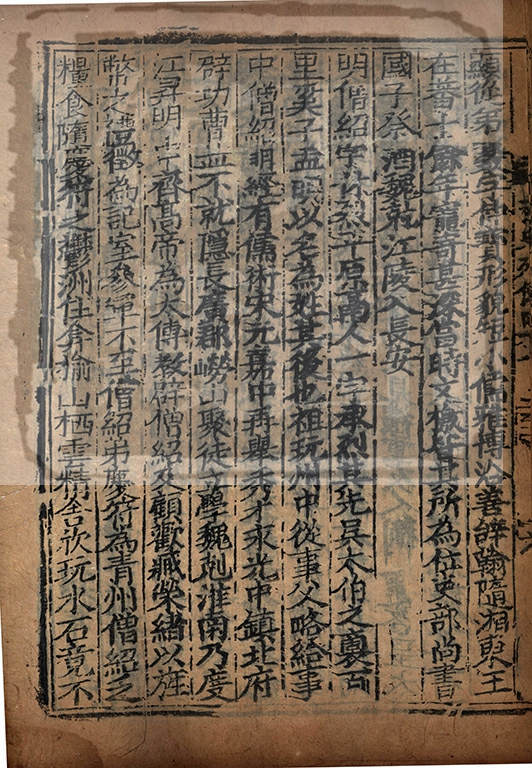 從弟形貌短小儒雅博洽善辭翰隨湘東王
在蕃十餘年寵寄甚深當時文檄皆其所為位吏部尚書
國子祭酒魏剋江陵入長安
明僧紹字休烈平原鬲人一字承烈其先吳太伯之裔百
里奚子孟明以名為姓其後也祖玩州中從事父略給事
中僧紹明經有儒術宋元嘉中再舉秀才永光中鎮北府
辟功曹並不就隱長廣郡嶗山聚徒立學魏剋淮南乃度
江昇明中齊高帝為太傅教辟僧紹及顧歡臧榮緒以旌
幣之禮徵為記室參軍不至僧紹弟慶符為青州僧紹乏
糧食隨慶符之鬱州住弇榆山栖雲精舍欣玩水石竟不